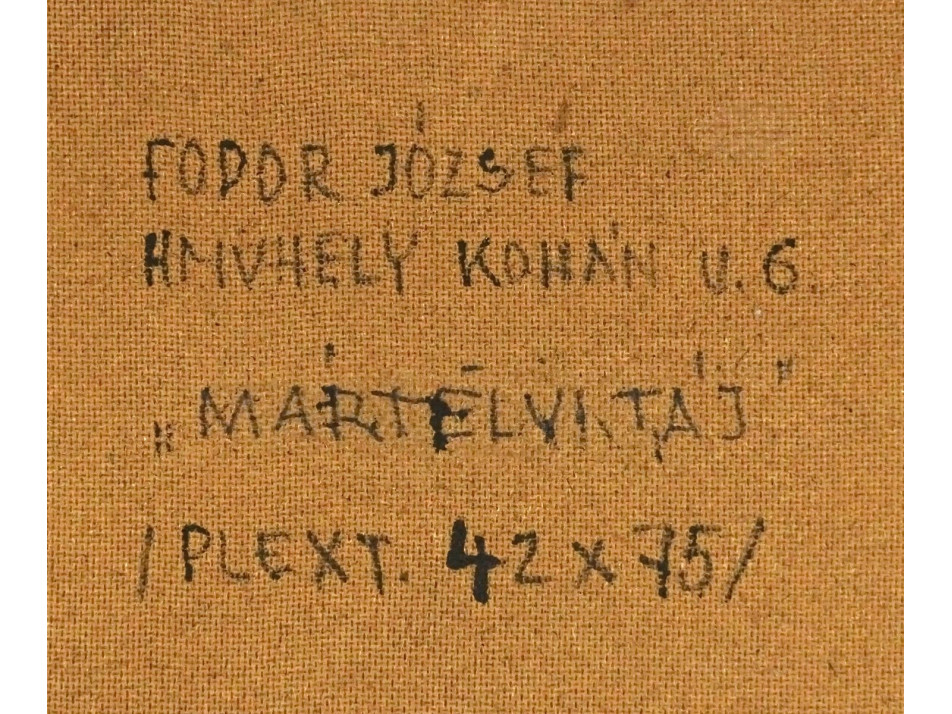 FODOR JÓZSEF
HMVHELY KOHÁN U. 6.
„MÁRTÉLVI TÁJ"
/PLEXT. 42 x 75/